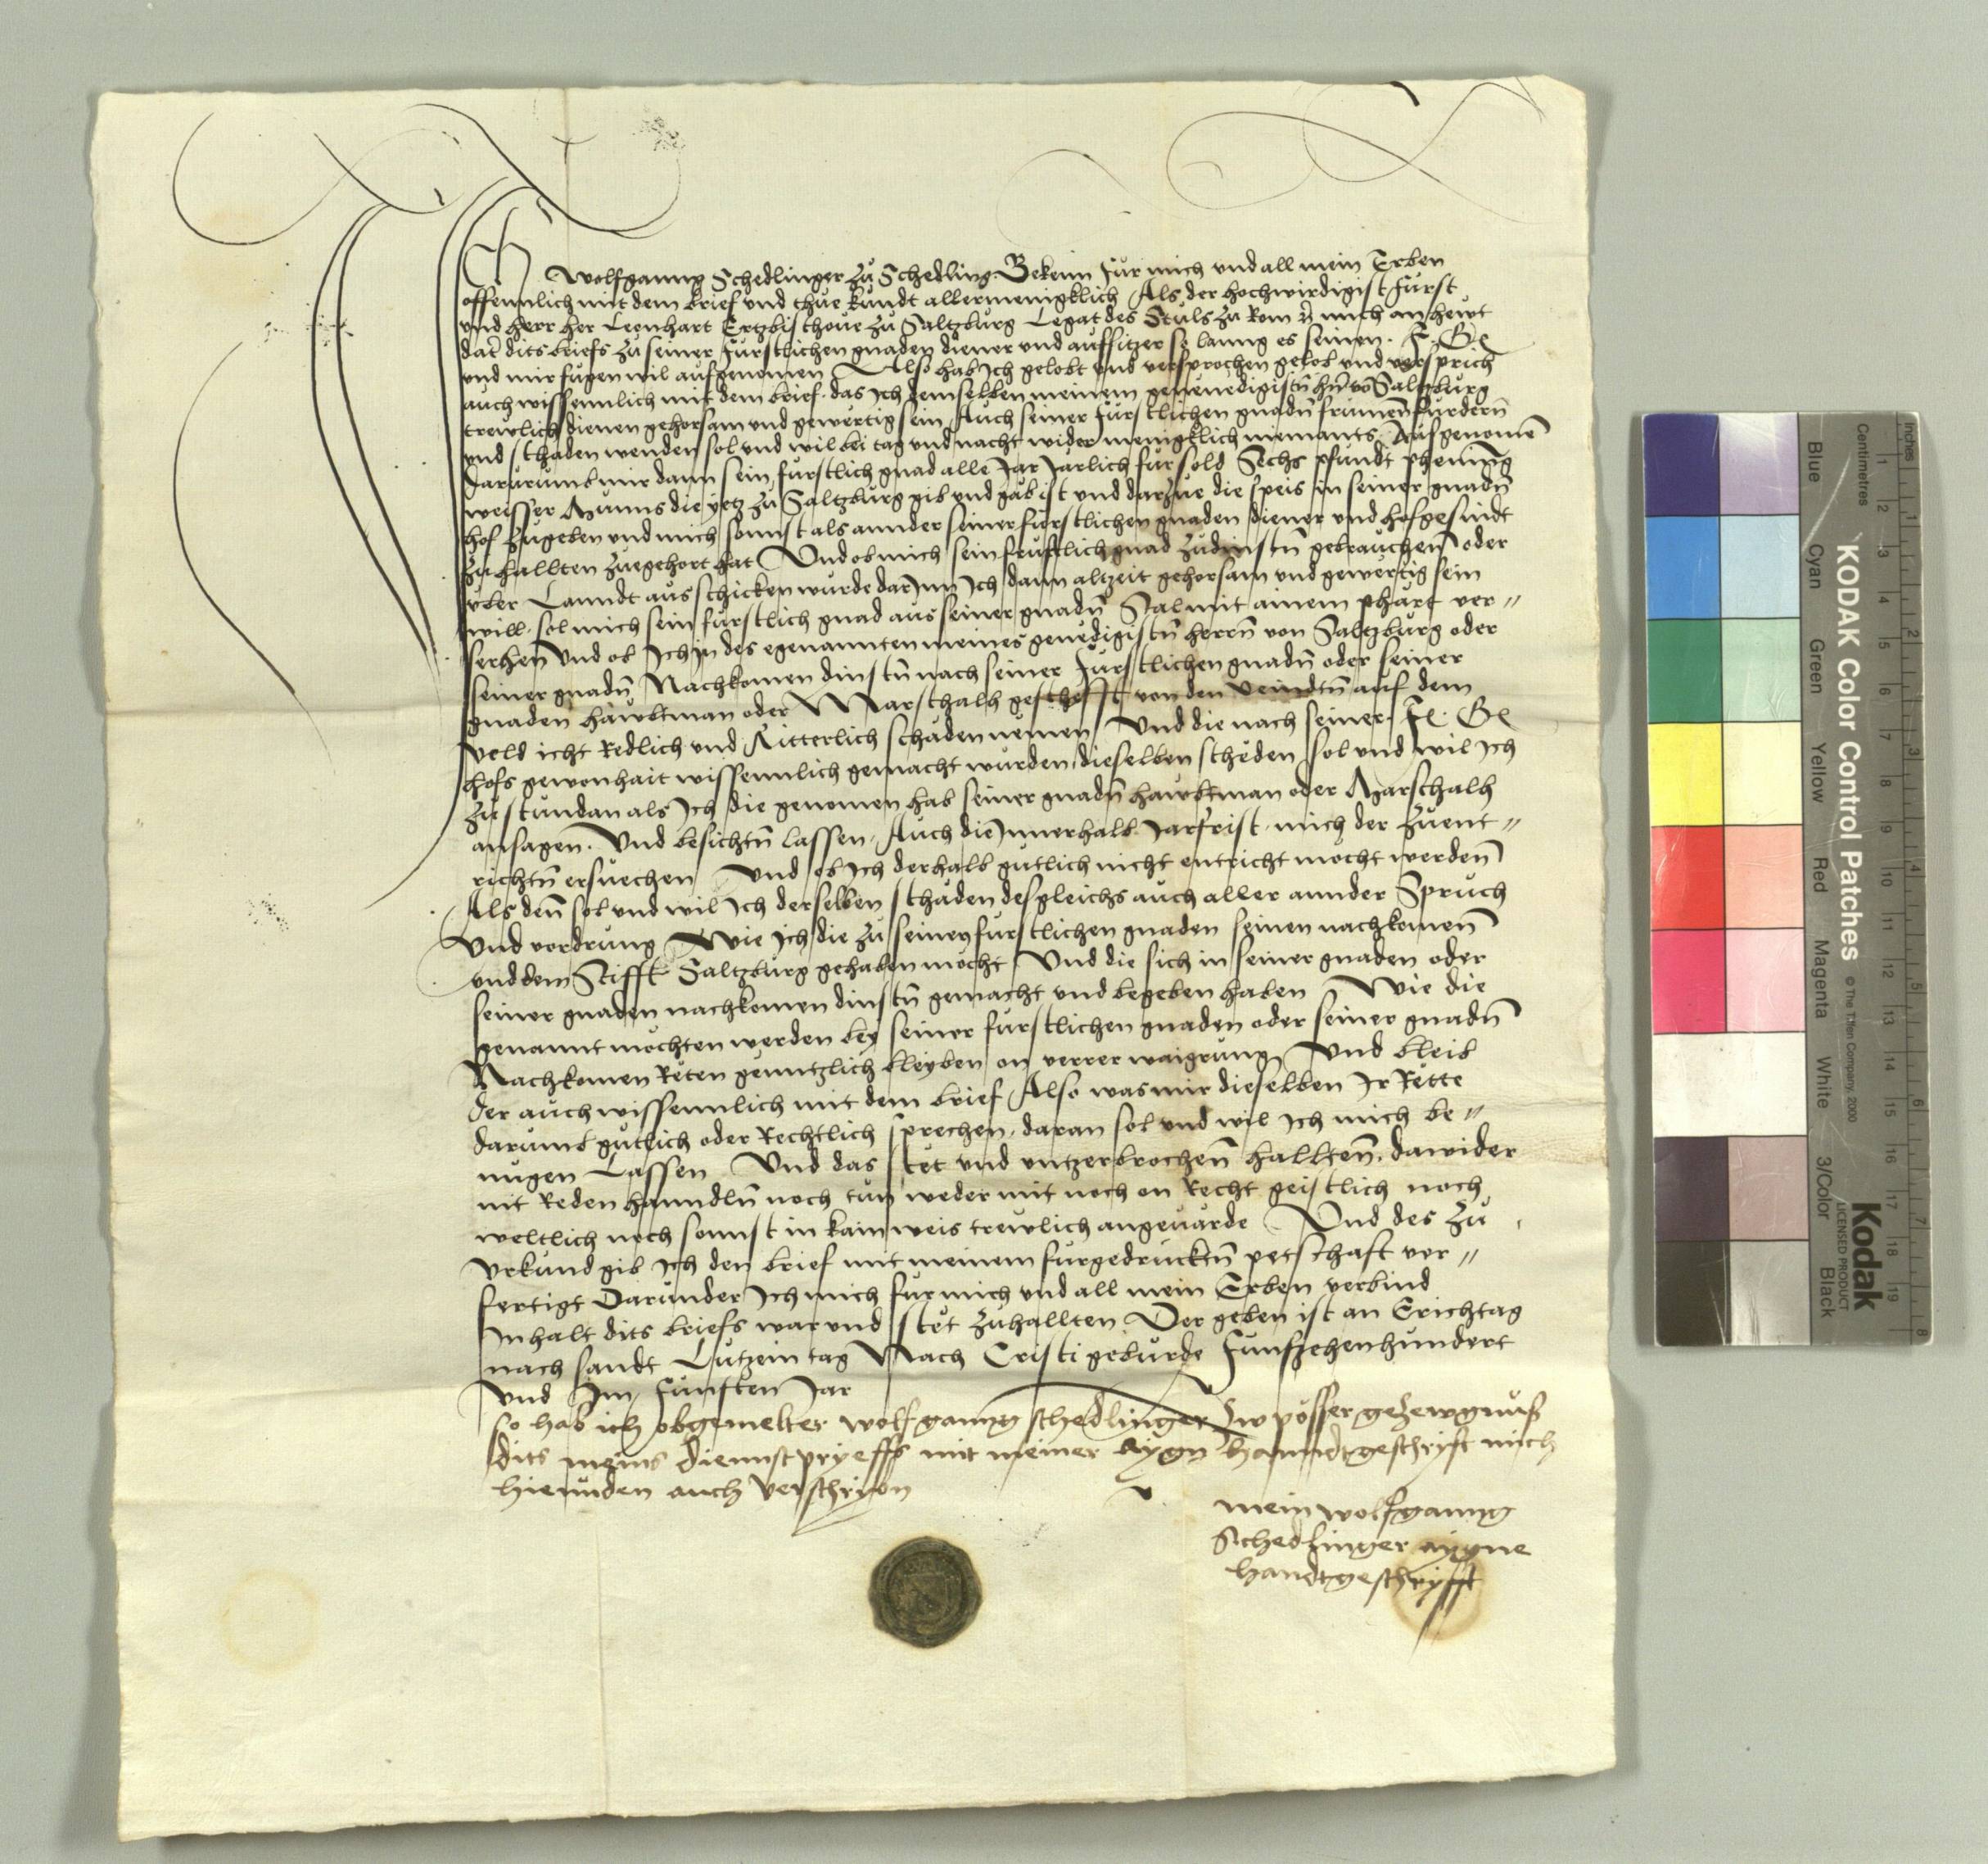 Ich Wolfganng Schedlinger zu Schedling. Bekenn fur mich vnd all mein Erben
offennlich mit dem brief vnd thue kundt allermenigklich Als der hochwirdigist furst
vnd herr her Leonhart Ertzbischoue zu Saltzburg Legat des Stuls zu Rom mich an hewt
dat dits briefs zu seiner furstlichen gnaden diener vnd auffsitzer so lanng es seinen F. G.
vnd mir fugen wil aufgenomen Also hab Ich gelobt vnd versprochen gelob vnd versprich
auch wissennlich mit dem brief. das Ich demselben meinem genenedigistn hrn von Saltzburg
trewlich dienen gehorsam vnd gewertig sein Auch seiner furstlichen gnadn frumen furdern
vnd schaden wenden sol vnd wil bei tag vnd nacht wider menigklich niemants Ausgenomen
Darurumb mir dann sein furstlich gnad alle Jar Jarlich fur sold Sechs pfundt phening
weisser Munns die yetz zu Saltzburg gib vnd gab ist vnd darzue die speis in seiner gnadn
hof zugeben vnd mich sonnst als annder seiner furstlichen gnaden diener vnd hofgesindt
zuhallten zuegehort hat Vnd ob mich sein frustlich gnad zudinstn gebrauchen oder
vber Lanndt ausschicken wurde darInn Ich dann altzeit gehorsam vnd gewertig sein
will. sol mich sein furstlich gnad aus seiner gnadn Stal mit ainem phärt ver〃
sehen Vnd ob Ich in des egenannten meines genedigistn herrn von Saltzburg oder
seiner gnadn Nachkomen dinstn nach seiner furstlichen gnadn oder seiner
gnaden hawbtman oder Marschalh geschefft von den veindtn auf dem
veld icht Redlich vnd Ritterlich schaden nemen Vnd die nach seiner F. G.
hofs gewonhait wissennlich gemacht wurden, dieselben scheden sol vnd wil Ich
zustundan als Ich die genomen hab seiner gnadn hawbtman oder Marschalh
ansagen. Vnd besichtn lassen, Auch die Innerhalb Jarfrist. mich der zuent〃
richtn ersuechen Vnd ob Ich derhalb gutlich nicht entricht mocht werden
Als denn sol vnd wil Ich derselben schaden desgleichs auch aller annder Spruch
Vnd vordrung Wie Ich die zu seinen furstlichen gnaden seinen nachkomen
vnd dem Stifft Saltzburg gehaben mocht Vnd die sich in seiner gnaden oder
seiner gnaden nachkomen dinstn gemacht vnd begeben haben Wie die
genannt mochten werden bey seiner furstlichen gnaden oder seiner gnadn
Nachkomen Reten genntzlich bleyben on verrer waigrung Vnd bleib
der auch wissennlich mit dem brief Also was mir dieselben Ir Rette
darumb gutlich oder Rechtlich sprechen. daran sol vnd wil Ich mich be〃
nugen Lassen Vnd das stet vnd vntzerbrochen hallten. dawider
nit Reden hanndln noch tun weder mit noch on Recht geistlich noch
weltlich noch sonnst in kain weis trewlich angeuärde Vnd des zu
vrkund gib Ich den brief mit meinem furgedrucktn petschaft ver〃
fertigt Darunder Ich mich fur mich vnd all mein Erben verbind
Inhalt dits briefs war vnd stet zuhallten Der geben ist an Erichtag
nach sandt Lutzein tag Nach Cristi geburde Funfzehenhundert
vnd Im funften Jar
so hab ich obgemelter wolfganng schedlinger zw pösser gezewgnuß
dits meins diennstpryeffs mit meiner aygn hanndtgeschrift mich
hierunden auch verschriben
mein wolfganng
Schedlinger aygne
handtgeschryfft
Inches
Centimetres
1 2 3 4 5 6 7 8 9 10 11 12 13 14 15 16 17 18 19
1 2 3 4 5 6 7 8
KODAK Color Control Patches © The Tiffen Company, 2000
Kodak
LICENSED PRODUCT
Blue Cyan Green Yellow Red Magenta White 3/Color Black